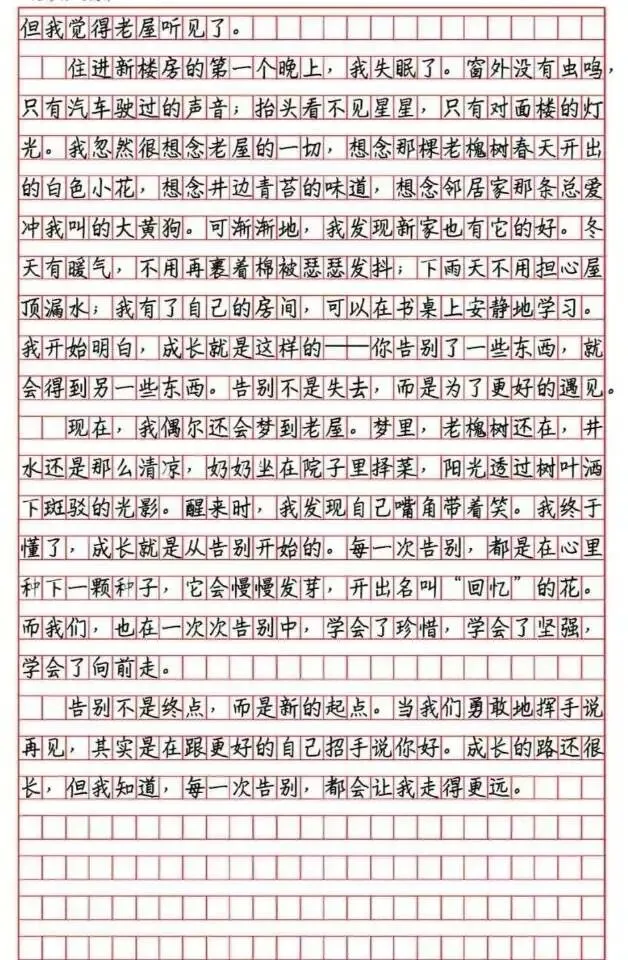 但我觉得老屋听见了。
住进新楼房的第一个晚上，我失眠了。窗外没有虫鸣，
只有汽车驶过的声音；抬头看不见星星，只有对面楼的灯
光。我忽然很想念老屋的一切，想念那棵老槐树春天开出
的白色小花，想念井边青苔的味道，想念邻居家那条总爱
冲我叫的大黄狗。可渐渐地，我发现新家也有它的好。冬
天有暖气，不用再裹着棉被瑟瑟发抖；下雨天不用担心屋
顶漏水；我有了自己的房间，可以在书桌上安静地学习。
我开始明白，成长就是这样的——你告别了一些东西，就
会得到另一些东西。告别不是失去，而是为了更好的遇见。
现在，我偶尔还会梦到老屋。梦里，老槐树还在，井
水还是那么清凉，奶奶坐在院子里择菜，阳光透过树叶洒
下斑驳的光影。醒来时，我发现自己嘴角带着笑。我终于
懂了，成长就是从告别开始的。每一次告别，都是在心里
种下一颗种子，它会慢慢发芽，开出名叫“回忆”的花。
而我们，也在一次次告别中，学会了珍惜，学会了坚强，
学会了向前走。
告别不是终点，而是新的起点。当我们勇敢地挥手说
再见，其实是在跟更好的自己招手说你好。成长的路还很
长，但我知道，每一次告别，都会让我走得更远。